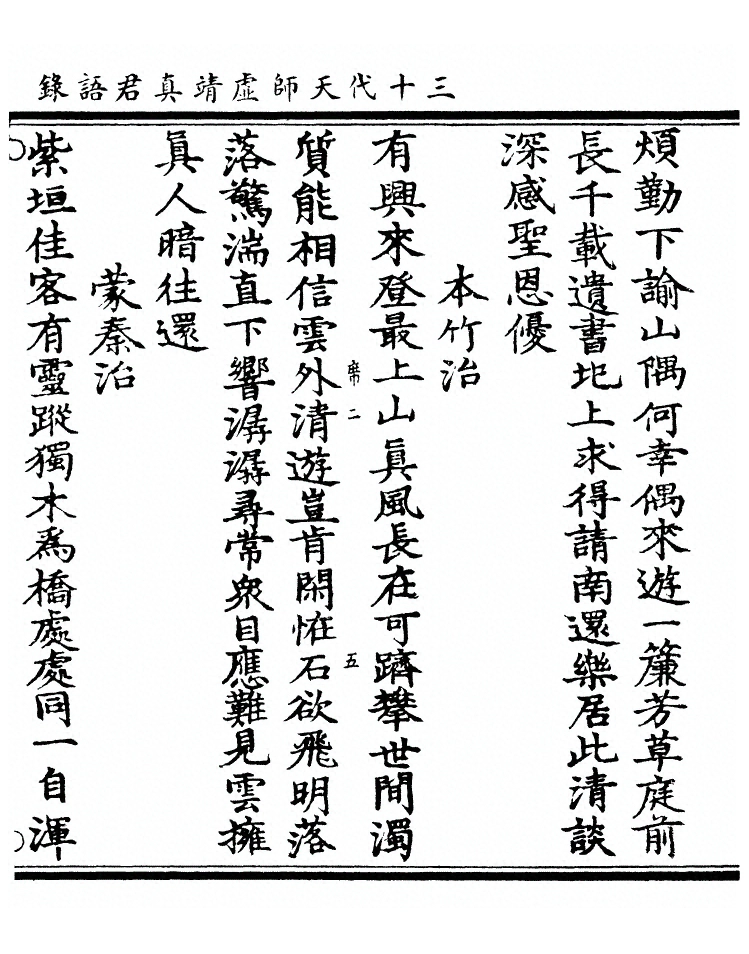 三十代天師虛靖真君語錄
煩勤下諭山隅何幸偶來遊一簾芳草庭前
長千載遺書圯上求得請南還樂居此清談
深感聖恩優
本竹治
有興來登最上山眞風長在可躋攀世間濁
席二 五
質能相信雲外清遊豈肯閑恠石欲飛明落
落驚湍直下響潺潺尋常衆目應難見雲擁
眞人暗往還
蒙秦治
紫垣佳客有靈蹤獨木爲橋處處同一自渾